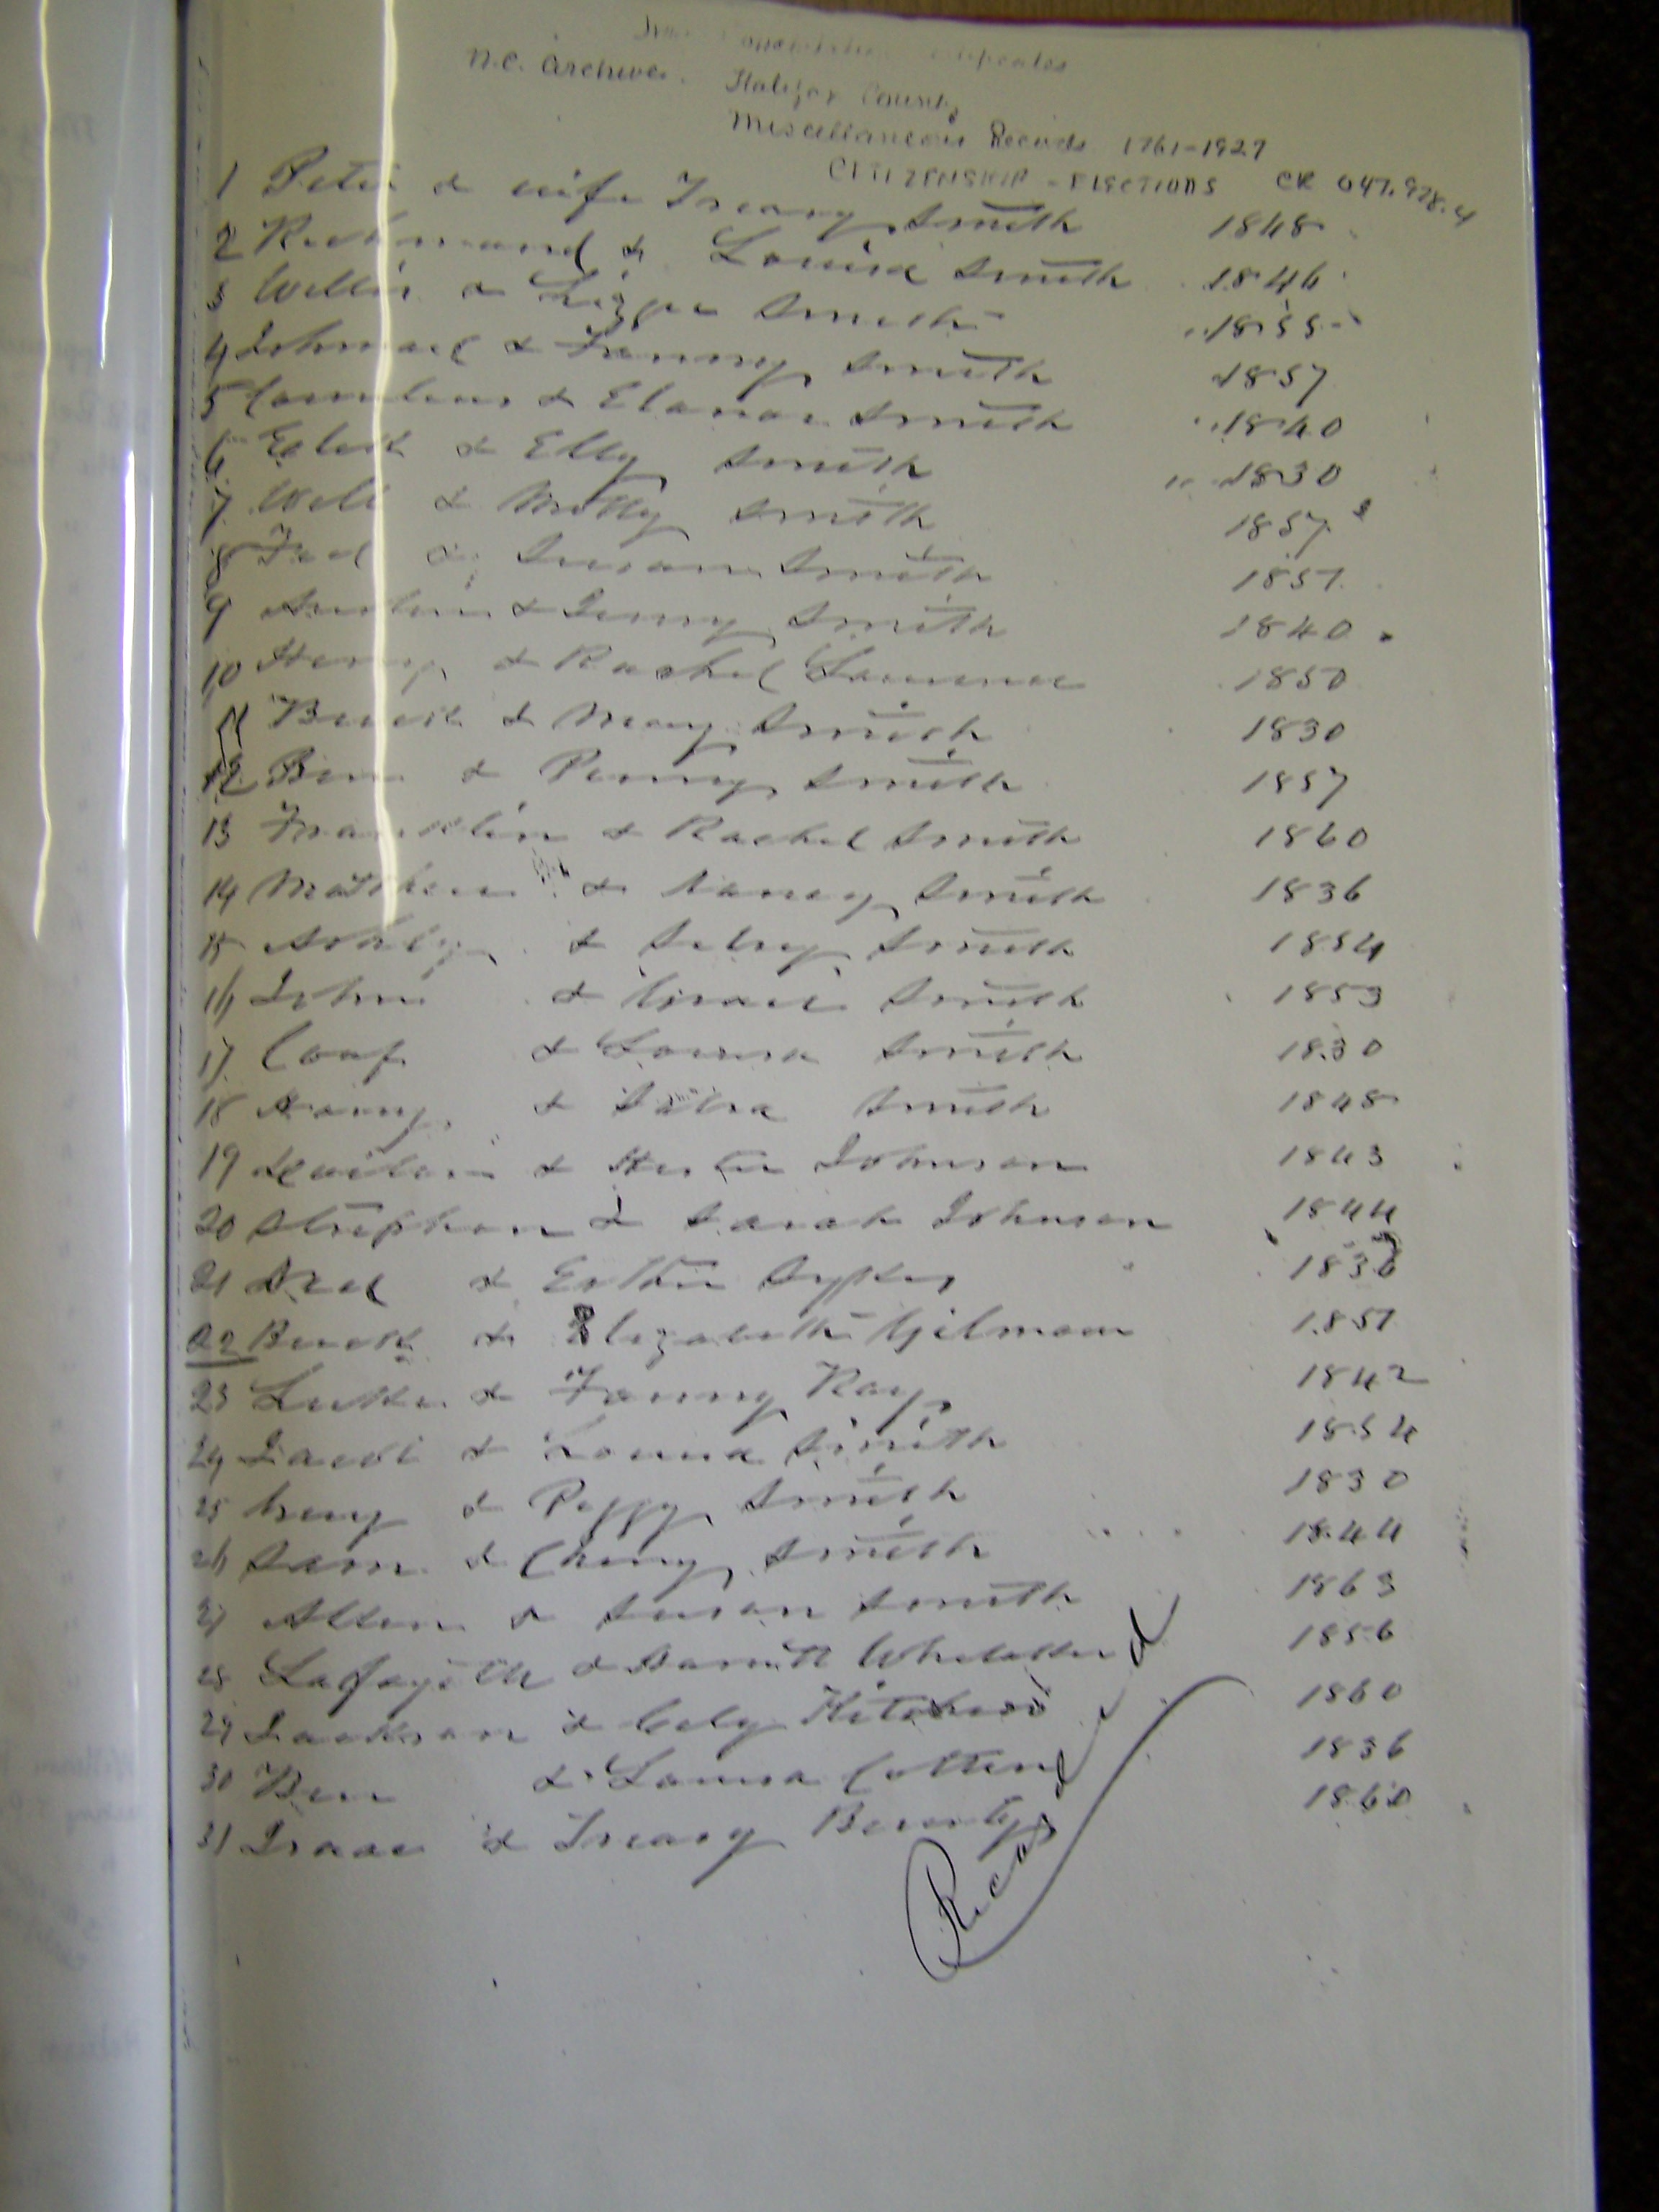 N.C. Archives. Halifax County
Miscellaneous Records 1761-1927
CITIZENSHIP - ELECTIONS CR 047.928.4
1 Peter & wife Treasy Smith 1848
2 Richmond & Louisa Smith 1846
3 Willis & Lizzie Smith 1855
4 Ishmael & Fanny Smith 1857
5 Cornelius & Elanor Smith 1840
6 & Elly Smith 1830
7 Will & Molly Smith 1857
8 & Susan Smith 1857
9 & Jenny Smith 1840
10 Henry & Rachel 1850
11 & Mary Smith 1830
12 Ben & Penny Smith 1857
13 Franklin & Rachel Smith 1860
14 Matthew & Nancy Smith 1836
15 & Smith 1854
16 John & Grace Smith 1853
17 & Louisa Smith 1830
18 & Smith 1848
19 & Hester Johnson 1843
20 Stephen & Sarah Johnson 1844
21 & Esther 183
22 Buck & Elizabeth Gilmour 1857
23 Luke & Fanny Ray 1842
24 Jacob & Louisa Smith 1854
25 & Peggy Smith 1830
26 Sam & Smith 1844
27 Allen & Susan Smith 1863
28 Lafayette & Harriett 1856
29 Jackson & Cely 1860
30 Ben & Louisa Cotten 1836
31 Isaac & Treasy 1860
Recorded